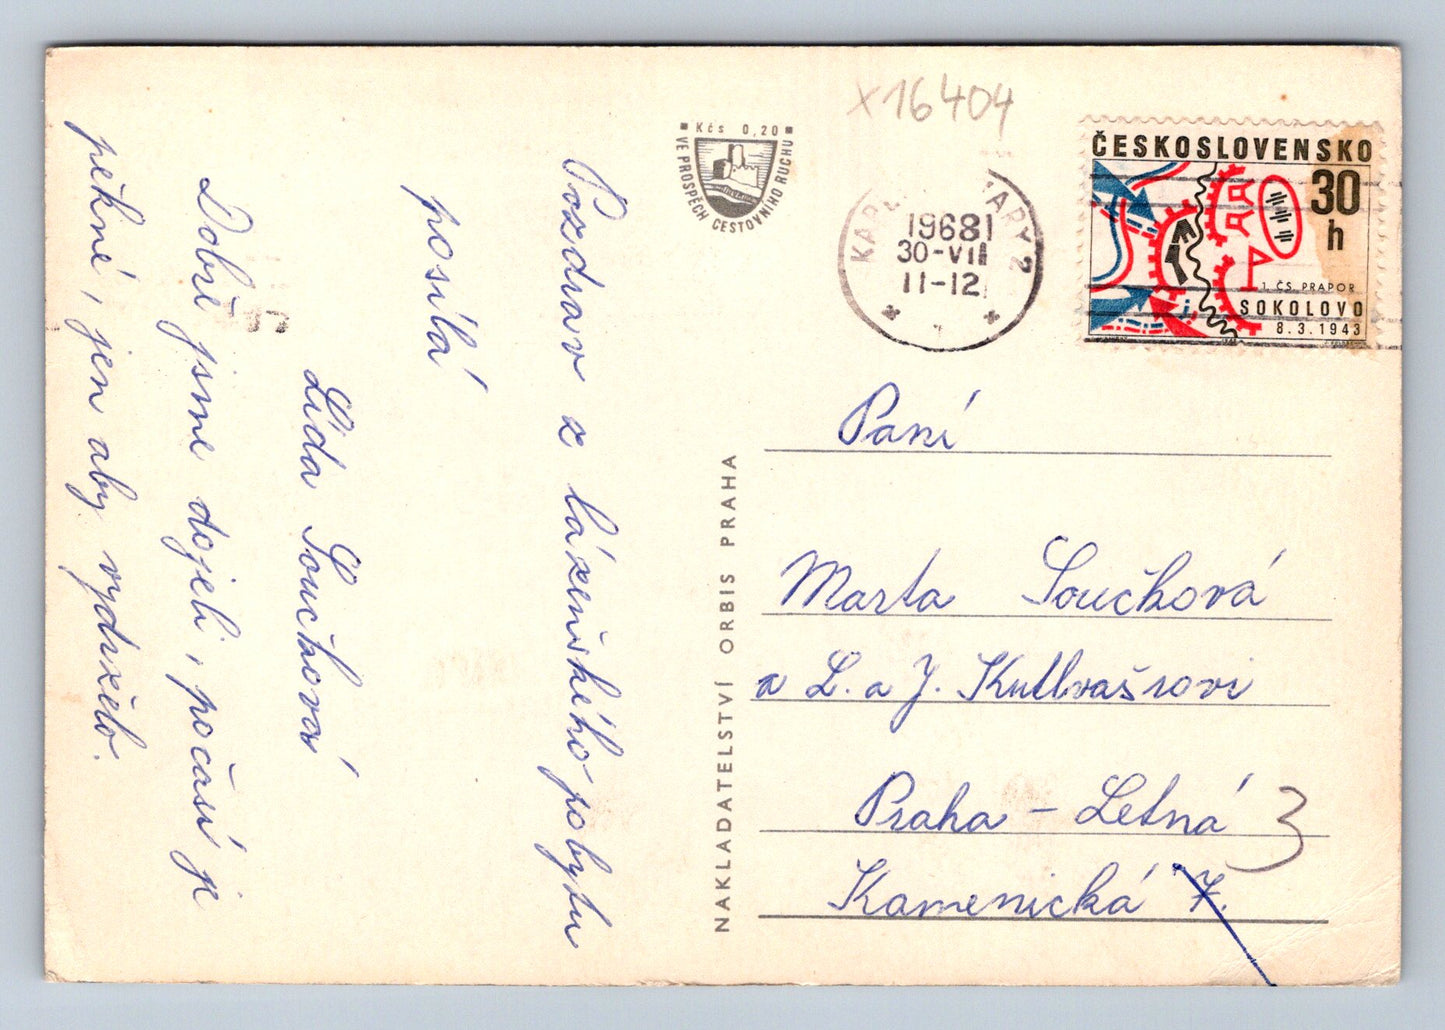 x16404
Kčs 0,20
VE PROSPĚCH CESTOVNÍHO RUCHU
KARLOVY VARY 2
1968
30-VII
11-12
ČESKOSLOVENSKO
30
h
1. ČS. PRAPOR
SOKOLOVO
8.3.1943
Pozdrav z lázeňského pobytu
posílá
Lída Součková
Dobře jsme dojeli, počasí je
pěkné, jen aby vydrželo.
NAKLADATELSTVÍ ORBIS PRAHA
Paní
Marta Součková
a L. a J. Kutlvašrovi
Praha - Letná 3
Kamenická 7.